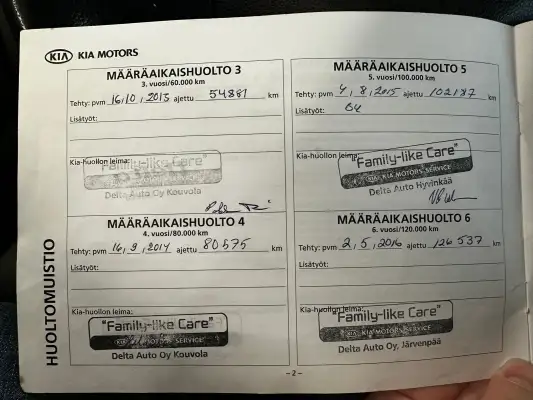 KIA KIA MOTORS
MÄÄRÄAIKAISHUOLTO 3
3. vuosi/60.000 km
Tehty: pvm 16,10,2013 ajettu 54881 km
Lisätyöt:
Kia-huollon leima:
"Family-like Care"
KIA MOTORS SERVICE
Delta Auto Oy Kouvola
MÄÄRÄAIKAISHUOLTO 4
4. vuosi/80.000 km
Tehty: pvm 16,9,2014 ajettu 80575 km
Lisätyöt:
Kia-huollon leima:
"Family-like Care"
KIA MOTORS SERVICE
Delta Auto Oy Kouvola
MÄÄRÄAIKAISHUOLTO 5
5. vuosi/100.000 km
Tehty: pvm 4,8,2015 ajettu 102187 km
Lisätyöt:
Kia-huollon leima:
"Family-like Care"
KIA KIA MOTORS SERVICE
Delta Auto Hyvinkää
MÄÄRÄAIKAISHUOLTO 6
6. vuosi/120.000 km
Tehty: pvm 2,5,2016 ajettu 126537 km
Lisätyöt:
Kia-huollon leima:
"Family-like Care"
KIA KIA MOTORS SERVICE
Delta Auto Oy, Järvenpää
HUOLTOMUISTIO
-2-